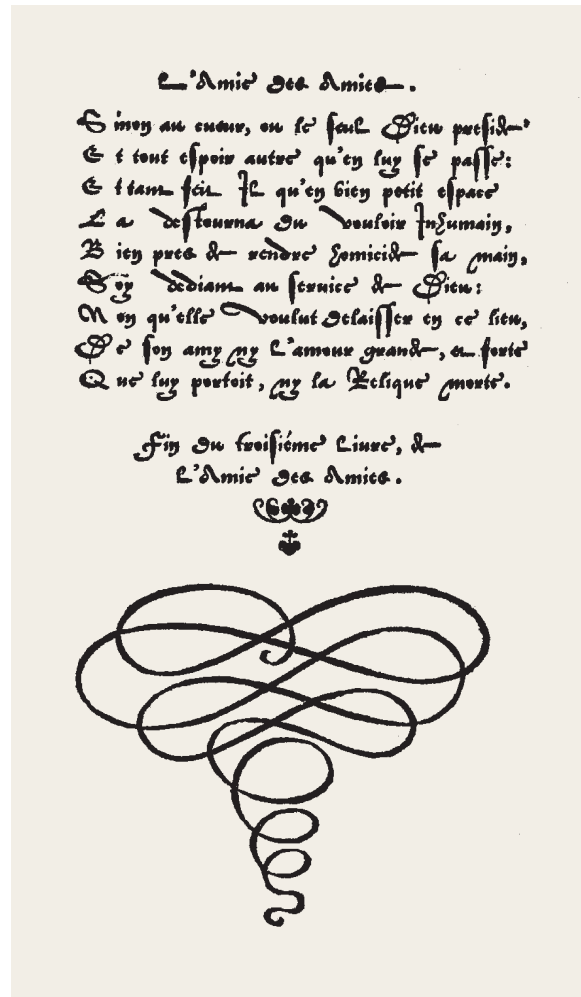 L'Amie des Amies.
Sinon au cueur, ou le seul Dieu preside,
Et tout espoir autre qu'en luy se passe:
Et tant feit Il qu'en bien petit espace
La destourna du vouloir Inhumain,
Bien pres de rendre homicide sa main,
Soy dediant au seruice de Dieu:
Non qu'elle voulut delaisser en ce lieu,
De son amy ny L'amour grande, et forte
Que luy portoit, ny la Relique morte.
Fin du troisiéme Liure, de
L'Amie des Amies.